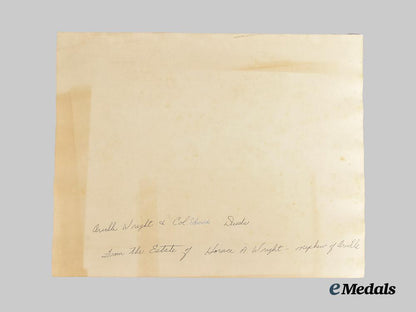 Orville Wright & Col. Deeds
From the Estate of Horace A Wright - nephew of Orville
eMedals